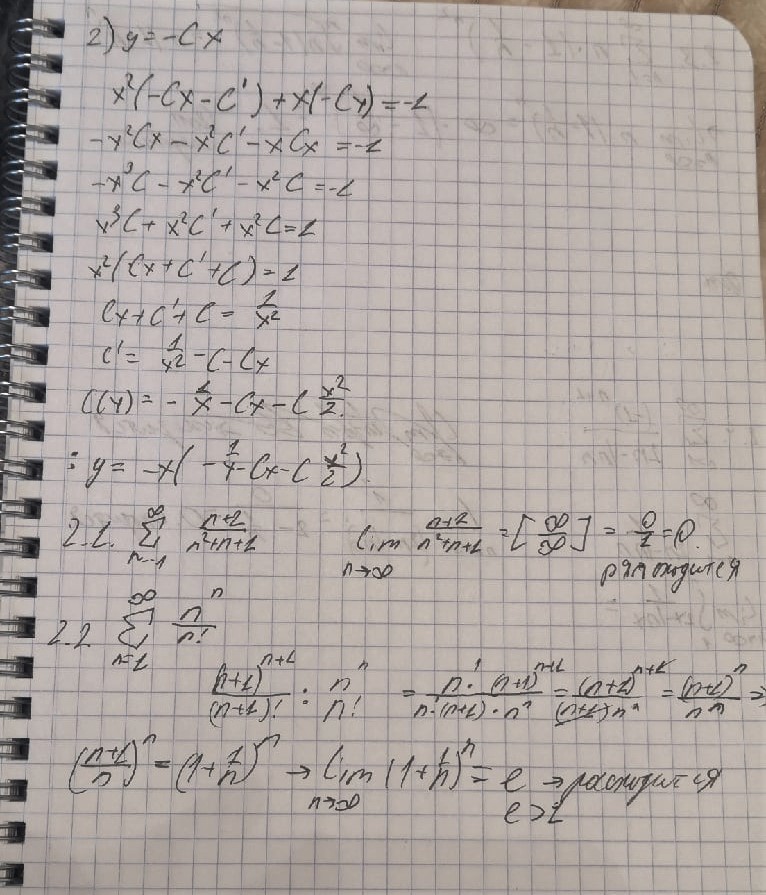 2) y = -Cx
x²(-Cx - C') + x(-Cx) = -1
-x²Cx - x²C' - xCx = -1
-x³C - x²C' - x²C = -1
x³C + x²C' + x²C = 1
x²(Cx + C' + C) = 1
Cx + C' + C = 1/x²
C' = 1/x² - C - Cx
C(x) = - 1/x - Cx - C x²/2
: y = -x( - 1/x - Cx - C x²/2 ).
2.1. ∑_{n=1}^{∞} (n+1)/(n²+n+1) lim_{n→∞} (n+1)/(n²+n+1) = [∞/∞] = 0/1 = 0.
расходится
2.2 ∑_{n=1}^{∞} nⁿ/n!
(n+1)ⁿ⁺¹/(n+1)! : nⁿ/n! = n! · (n+1)ⁿ⁺¹/n!·(n+1)·nⁿ = (n+1)ⁿ⁺¹/(n+1)nⁿ = (n+1)ⁿ/nⁿ ⇒
((n+1)/n)ⁿ = (1 + 1/n)ⁿ → lim_{n→∞} (1 + 1/n)ⁿ = e → расходится
e > 1